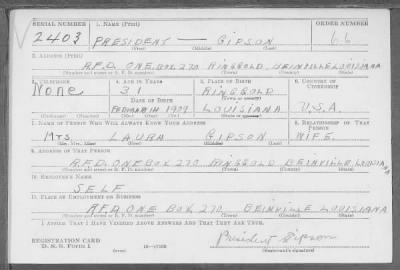 SERIAL NUMBER 1. NAME (Print) ORDER NUMBER
2403 PRESIDENT — GIPSON 66
(First) (Middle) (Last)
2. ADDRESS (Print)
R.F.D. ONE. BOX 270 RINGGOLD, BEINVILLE LOUISIANA
(Number and street or R. F. D. number) (Town) (County) (State)
3. TELEPHONE 4. AGE IN YEARS 5. PLACE OF BIRTH 6. COUNTRY OF CITIZENSHIP
None 31 RINGGOLD
DATE OF BIRTH (Town or county)
1909 LOUISIANA U.S.A.
(Mo.) (Day) (Yr.) (State or country)
7. NAME OF PERSON WHO WILL ALWAYS KNOW YOUR ADDRESS 8. RELATIONSHIP OF THAT PERSON
Mrs. LAURA GIPSON WIFE.
(Mr., Mrs., Miss) (First) (Middle) (Last)
9. ADDRESS OF THAT PERSON
R.F.D. ONE BOX 270 RINGGOLD BEINVILLE, LOUISIANA
(Number and street or R. F. D. number) (Town) (County) (State)
10. EMPLOYER'S NAME
SELF
11. PLACE OF EMPLOYMENT OR BUSINESS
R.F.D. ONE BOX 270 BEINVILLE LOUISIANA
(Number and street or R. F. D. number) (Town) (County) (State)
I AFFIRM THAT I HAVE VERIFIED ABOVE ANSWERS AND THAT THEY ARE TRUE.
REGISTRATION CARD
D. S. S. FORM 1 (over) President Gipson
(Registrant's signature)